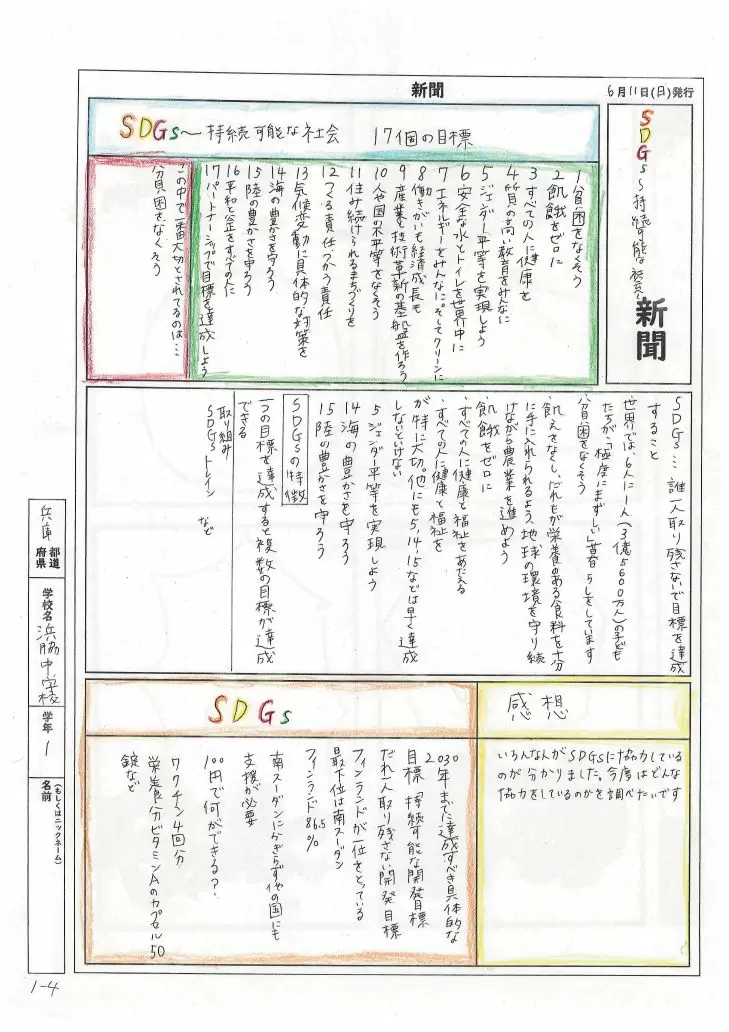 新聞
6月11日(日)発行
SDGs~持続可能な社会~
新聞
SDGs~持続可能な社会 17個の目標
1貧困をなくそう
2飢餓をゼロに
3すべての人に健康を
4質の高い教育をみんなに
5ジェンダー平等を実現しよう
6安全な水とトイレを世界中に
7エネルギーをみんなに。そしてクリーンに
8働きがいも経済成長も
9産業と技術革新の基盤を作ろう
10人や国の不平等をなくそう
11住み続けられるまちづくりを
12つくる責任つかう責任
13気候変動に具体的な対策を
14海の豊かさを守ろう
15陸の豊かさを守ろう
16平和と公正をすべての人に
17パートナーシップで目標を達成しよう
この中で一番大切とされてるのは…
貧困をなくそう
SDGs…誰一人取り残さないで目標を達成
すること
世界では、6人に1人(3億5600万人)の子ども
たちが、「極度にまずしい」暮らしをしています
貧困をなくそう
飢えをなくし、だれもが栄養のある食料を十分
に手に入れられるよう、地球の環境を守り続
けながら農業を進めよう
飢餓をゼロに
・すべての人に健康と福祉をあたえる
・すべての人に健康と福祉を
が特に大切。他にも5,14,15などは早く達成
しないといけない
5ジェンダー平等を実現しよう
14海の豊かさを守ろう
15陸の豊かさを守ろう
SDGsの特徴
一つの目標を達成すると複数の目標が達成
できる
取り組み
SDGsトレイン など
感想
いろんな人がSDGsに協力している
のが分かりました。今度はどんな
協力をしているのかを調べたいです
SDGs
2030年までに達成すべき具体的な
目標「持続可能な開発目標
だれ一人取り残さない開発目標
フィンランドが一位をとっている
最下位は南スーダン
フィンランド86.5%
南スーダンにかぎらず他の国にも
支援が必要
100円で何ができる?
ワクチン4回分
栄養分ビタミンAのカプセル50
錠など
兵庫 都道府県
学校名 浜脇中学校
学年 1
(もしくはニックネーム)
名前
1-4